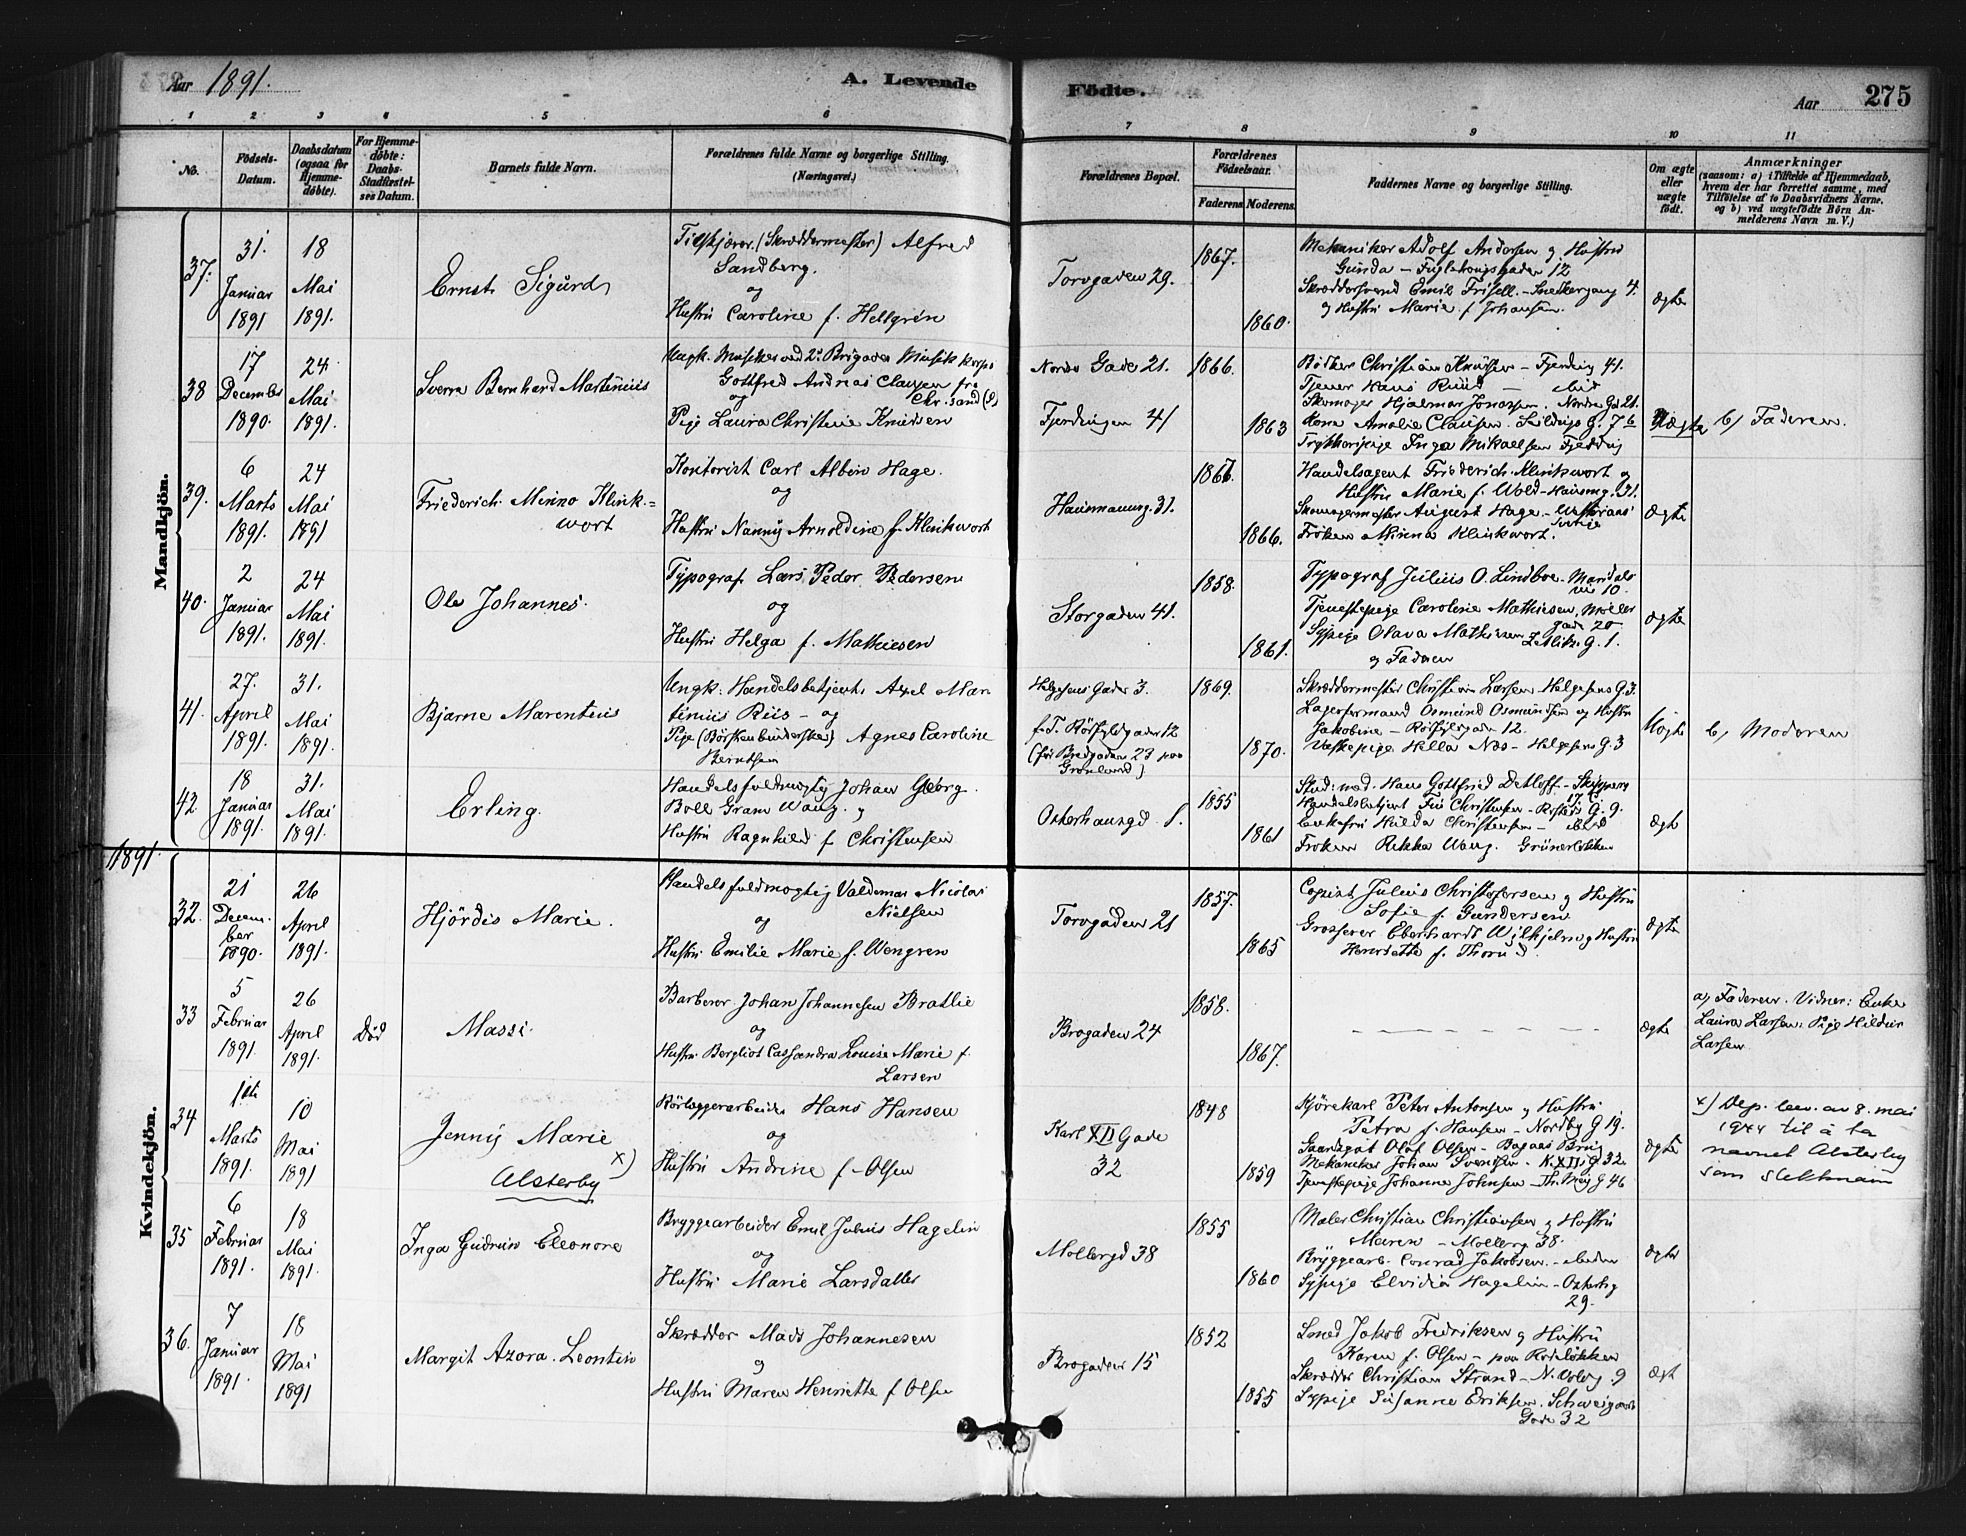 Aar 1891. A. Levende Födte. Aar 275
1 2 3 4 5 6 7 8 9 10 11
No. Födsels-Datum. Daabsdatum (ogsaa for Hjemmedöbte). For Hjemmedöbte: Daabs-Stadfæstelses Datum. Barnets fulde Navn. Forældrenes fulde Navne og borgerlige Stilling. (Næringsvei.) Forældrenes Bopæl. Forældrenes Födselsaar. Faderens Moderens. Faddernes Navne og borgerlige Stilling. Om ægte eller uægte födt. Anmærkninger (saasom: a) i Tilfælde af Hjemmedaab, hvem der har forrettet samme, med Tilföielse af to Daabsvidners Navne. og b) ved uægtefödte Börn Anmelderens Navn m. V.)
Mandkjön.
37. 31. Januar 1891 18 Mai 1891. Ernst Sigurd
Tilskjærer (Skræddermester) Alfred
Sandberg.
og
Hustru Caroline f. Hellgrén
Torvgaden 29. 1867. 1860.
Mekaniker Adolf Andersen og Hustru
Gunda – Fuglehaugsgaden 12
Skræddersvend Emil Frisell – Snekkergang 4.
og Hustru Marie f. Johansen.
ægte
38 17 December 1890. 24 Mai 1891. Sverre Bernhard Martinius
Ungk. Musiker ved 2. Brigades Musikkorps
Gottfred Andreas Clausen fra
og Chr.sand (S)
Pige Laura Christine Knudsen
Nordre Gade 21. 1866.
Fjerdingen 41 1863
Bödker Christian Knudsen – Fjerding 41.
Tjener Hans Ruud – ibid
Skomager Hjalmar Jonassen. Nordre Gd 21.
Kone Amalie Clausen.
Inga Mikaelsen
Uægte b) Faderen.
39. 6 Marts 1891. 24 Mai 1891 Friederich Minno Klinkwort
Kontorist Carl Albin Hage.
og
Hustru Nanny Arnoldine f. Klinkwort
Hausmannsg. 31. 1866.
Handelsagent Friederich Klinkwort og
Hustru Marie f. Wold – Hausmg. 31.
Skomagermester August Hage
Fröken Minna Klinkwort.
ægte
40. 2 Januar 1891. 24 Mai 1891. Ole Johannes.
Typograf Lars Peder Pedersen
og
Hustru Helga f. Mathiesen
Storgaden 41. 1858. 1861.
Typograf Julius O. Lindboe – Mandals
vei 10.
Tjenestepige Caroline Mathiesen, Möller
gade 20
Sypige Olava Mathiesen Zetlitz G. 1.
og Faderen
ægte
41. 27. April 1891. 31. Mai 1891. Bjarne Marentius
Ungk. Handelsbetjent Axel Marentinius Riis – og
Pige (Börstenbinderske) Agnes Caroline
Berntsen
Helgesens Gade 3. 1869.
(fra Bredgaden 23 paa
Grönland) 1870.
Skræddermester Christian Larsen Helgesens G 3.
Lagerformand Osmund Osmundsen og Hustru
Jakobine – 12.
Vaskepige Hella Næs – Helgesens G. 3
Uægte b) Moderen
42. 18 Januar 1891. 31. Mai 1891. Erling.
Handelsfuldmægtig Johan Georg
Boll Gram Wang. og
Hustru Ragnhild f. Christensen
Osterhausgd 8. 1855 1861
Stud. med. Hans Gottfried Detloff
Handelsbetjent
Enkefru Hulda Christensen – ibid
Fröken Rikka Wang. Grünerlökken
ægte
1891.
Kvindekjön.
32. 21 December 1890. 26 April 1891. Hjördis Marie.
Handelsfuldmægtig Valdemar Nicolai
Nielsen
og
Hustru Emilie Marie f. Wengren
Torvgaden 21 1857. 1865
Copist Julius Christofersen og Hustru
Sofie f. Gundersen
Grosserer Eberhardt Wilhjelm og Hustru
Henriette f. Thorud.
ægte
33 5 Februar 1891. 26 April 1891. Död Massi.
Barberer Johan Johannesen Bratlie
og
Hustru Bergliot Cassandra Louise Marie f.
Larsen
Brogaden 24 1858. 1867.
ægte
a) Faderen. Vidner: Enke
Laura Larsen. Pige Hildur
Larsen
34 1ste Marts 1891. 10 Mai 1891 Jenny Marie
Alsterby x)
Rörlæggerarbeider Hans Hansen
og
Hustru Andrine f. Olsen
Karl XII Gade
32 1848 1859
Kjörekarl Peter Antonsen og Hustru
Petra f. Hansen – Nordby G 19.
Gaardsgut Olaf Olsen
Mekaniker Johan Svendsen – K. XII G 32
Tjenestepige Johanne Johnsen – Th. Mey G 46
ægte
x) Dep. bev. av 8. mai
1944 til å ta
navnet Alsterby
som slektsnavn
35 6 Februar 1891. 18 Mai 1891. Inga Gudrun Eleonore
Bryggearbeider Emil Julius Hagelin
og
Hustru Marie Larsdatter
Mollergd 38 1855 1860
Maler Christian Christiansen og Hustru
Maren – Mollerg 38.
Bryggearb. Conrad Jakobsen. – ibidem
Sypige Elvidia Hagelin – Osterhsg
29.
ægte
36. 7 Januar 1891. 18 Mai 1891 Margit Azora Leontin
Skrædder Mads Johannesen
og
Hustru Maren Henriette f. Olsen
Brogaden 15 1852 1855
Smed Jakob Fredriksen og Hustru
Karen f. Olsen – paa Rodelökken
Skrædder Christian Strand – 9
Sypige Susanne Eriksen. Schweigaards
Gade 32
ægt